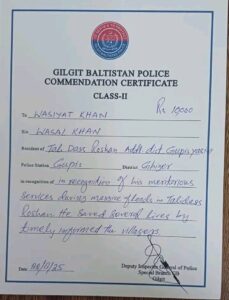 GILGIT BALTISTAN POLICE
COMMENDATION CERTIFICATE
CLASS-II
Rs 10000
To WASIYAT KHAN
S/o WASAL KHAN
Resident of Tah Dass Roshan Addt dist Gupis yasin
Police Station Gupis District Ghizer
in recognition of in recognition of his meritorious
services during massive floods in Talidass
Roshan. He saved several lives by
timely informed the villagers.
Date
Deputy Inspector General of Police
Special Branch, GB
Gilgit